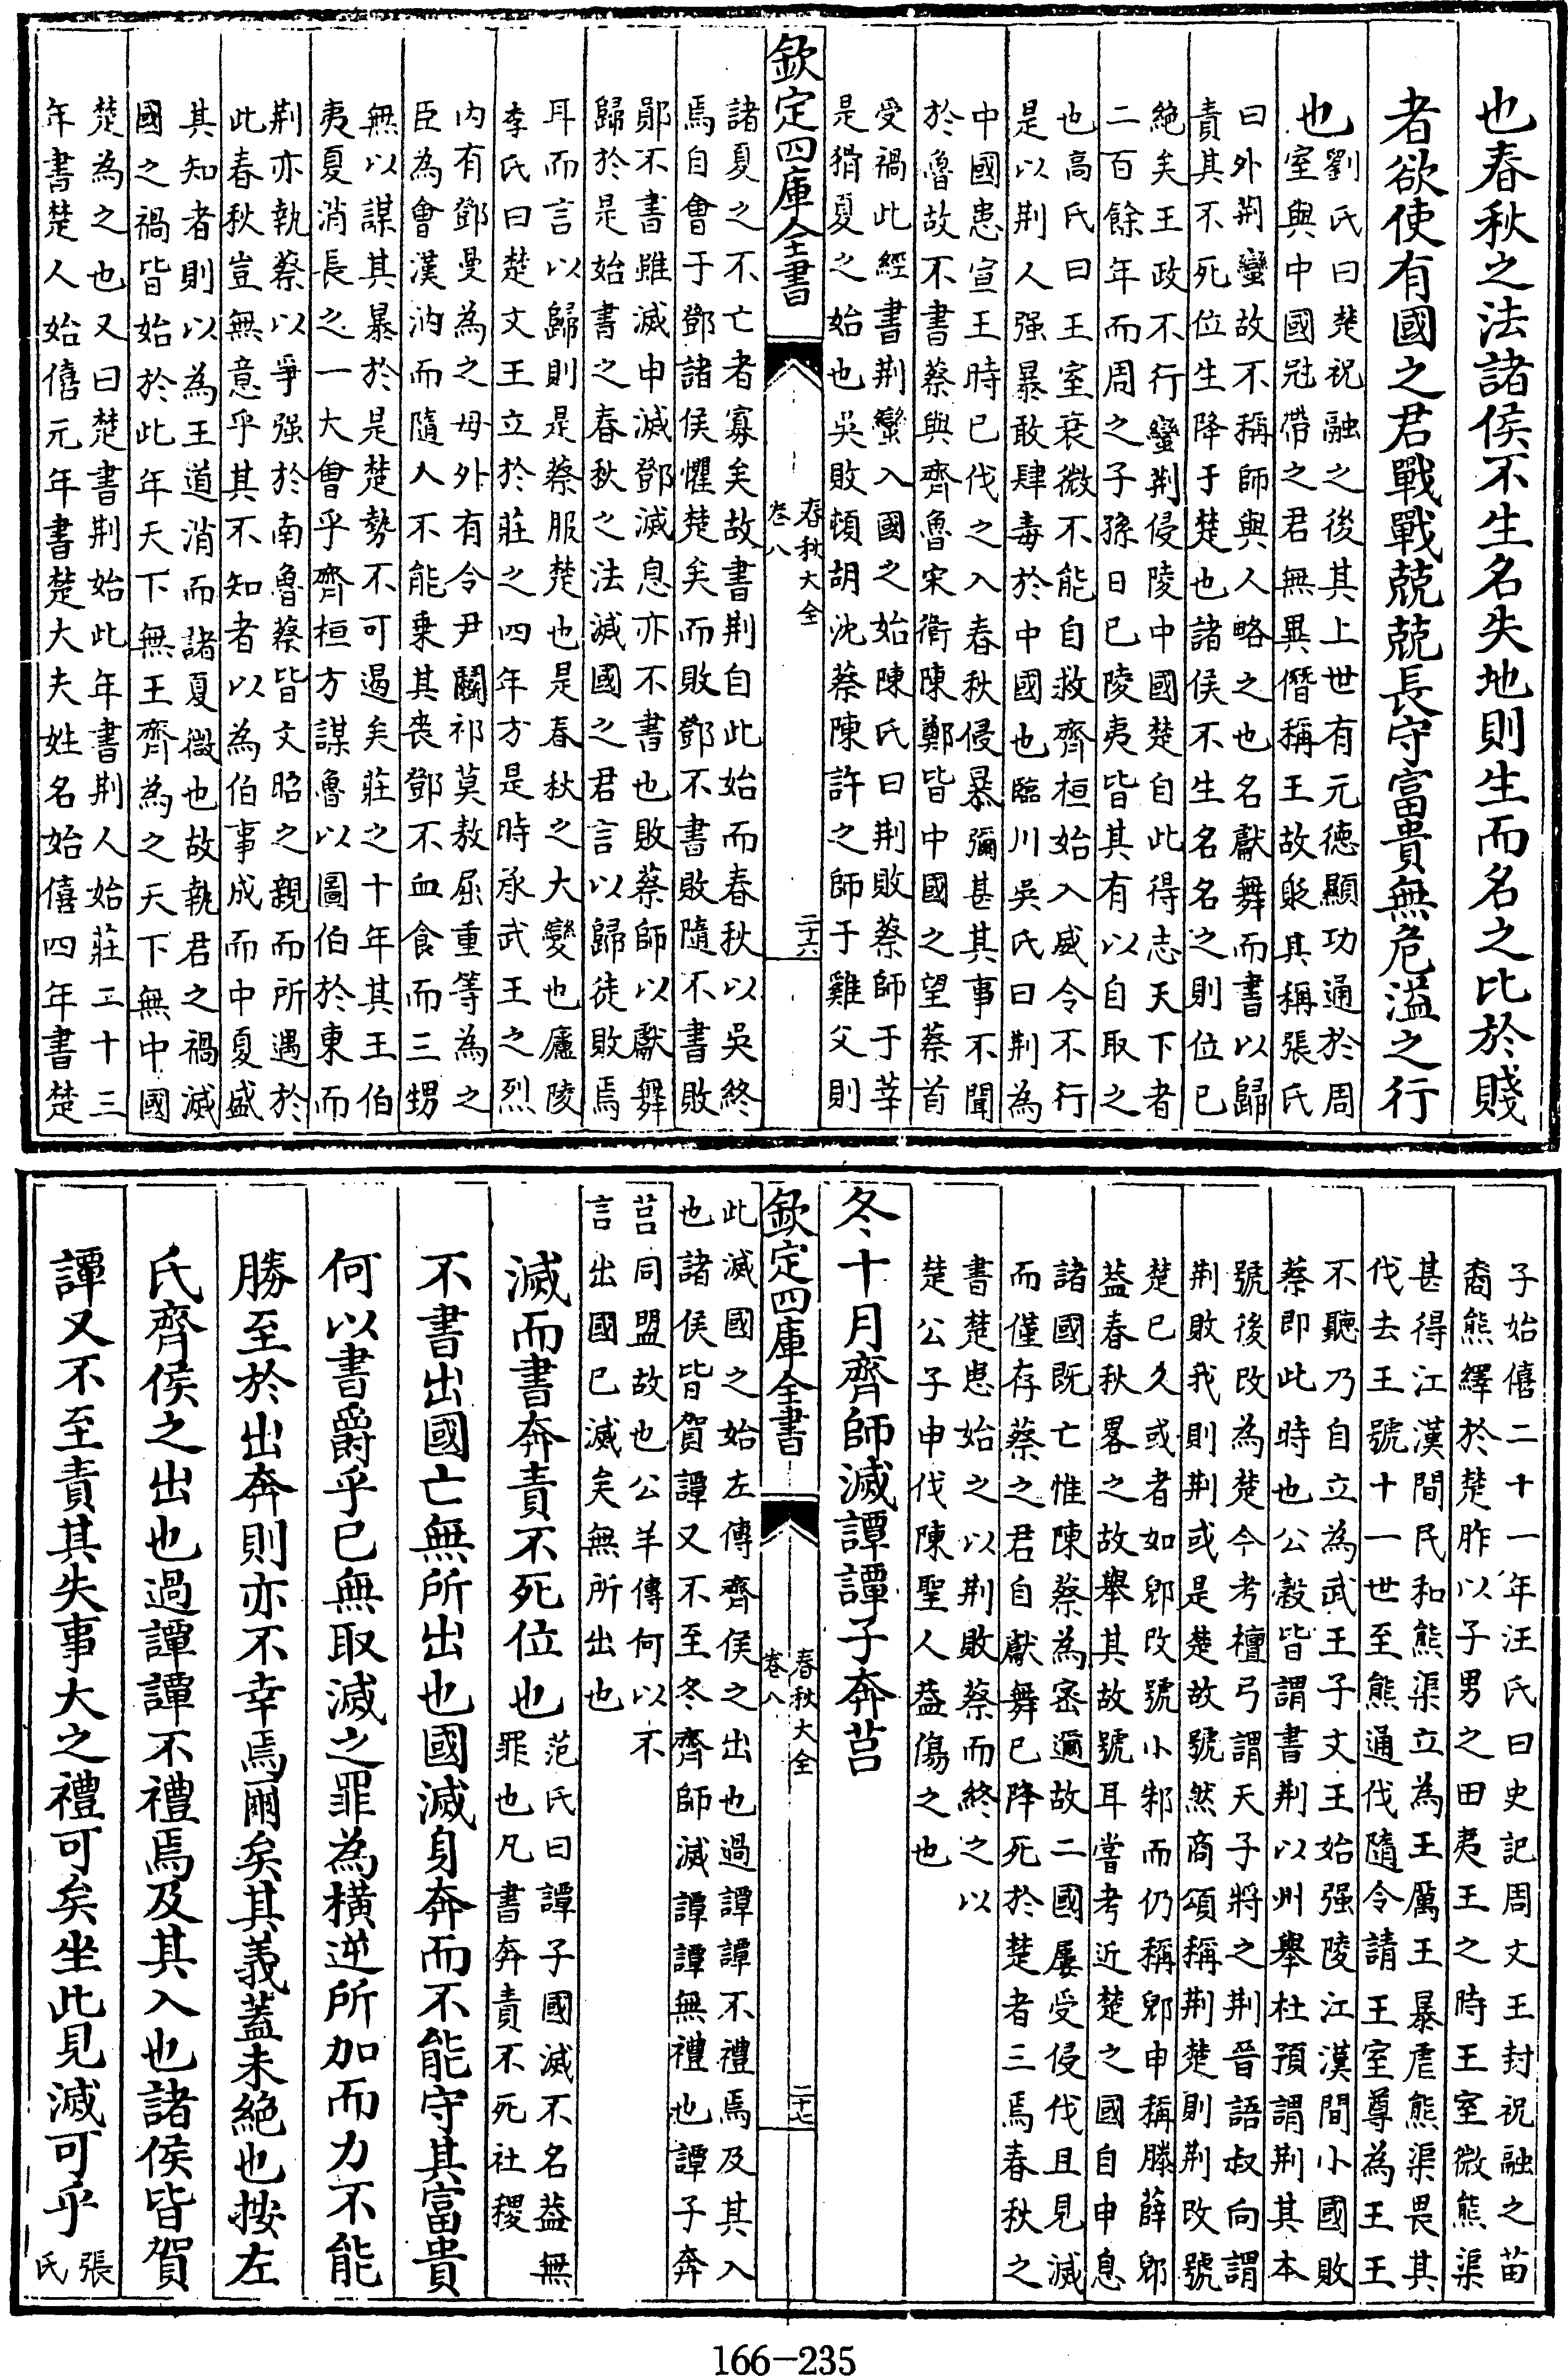 也春秋之法諸侯不生名失地則生而名之比於賤
者欲使有國之君戰戰兢兢長守富貴無危溢之行
也
劉氏曰楚祝融之後其上世有元德顯功通於周
室與中國冠帶之君無異僭稱王故貶其稱張氏
曰外荆蠻故不稱師與人略之也名獻舞而書以歸
責其不死位生降于楚也諸侯不生名名之則位已
絶矣王政不行蠻荆侵陵中國楚自此得志天下者
二百餘年而周之子孫日已陵夷皆其有以自取之
也高氏曰王室衰微不能自救齊桓始入威令不行
是以荆人强暴敢肆毒於中國也臨川吳氏曰荆為
中國患宣王時已伐之入春秋侵暴彌甚其事不聞
於魯故不書蔡與齊魯宋衛陳鄭皆中國之望蔡首
受禍此經書荆蠻入國之始陳氏曰荆敗蔡師于莘
是猾夏之始也吳敗頓胡沈蔡陳許之師于雞父則
欽定四庫全書
春秋大全
卷八
二十六
諸夏之不亡者寡矣故書荆自此始而春秋以吳終
焉自會于鄧諸侯懼楚矣而敗鄧不書敗隨不書敗
鄖不書雖滅申滅鄧滅息亦不書也敗蔡師以獻舞
歸於是始書之春秋之法滅國之君言以歸徒敗焉
耳而言以歸則是蔡服楚也是春秋之大變也廬陵
李氏曰楚文王立於莊之四年方是時承武王之烈
内有鄧曼為之毋外有令尹鬭祁莫敖屈重等為之
臣為會漢汭而隨人不能棄其喪鄧不血食而三甥
無以謀其暴於是楚勢不可遏矣莊之十年其王伯
夷夏消長之一大會乎齊桓方謀魯以圖伯於東而
荆亦執蔡以爭强於南魯蔡皆文昭之親而所遇於
此春秋豈無意乎其不知者以為伯事成而中夏盛
其知者則以為王道消而諸夏微也故執君之禍滅
國之禍皆始於此年天下無王齊為之天下無中國
楚為之也又曰楚書荆始此年書荆人始莊二十三
年書楚人始僖元年書楚大夫姓名始僖四年書楚
子始僖二十一年汪氏曰史記周文王封祝融之苗
裔熊繹於楚胙以子男之田夷王之時王室微熊渠
甚得江漢間民和熊渠立為王厲王暴虐熊渠畏其
伐去王號十一世至熊通伐隨令請王室尊為王王
不聽乃自立為武王子文王始强陵江漢間小國敗
蔡即此時也公穀皆謂書荆以州舉杜預謂荆其本
號後改為楚今考檀弓謂天子將之荆晉語叔向謂
荆敗我則荆或是楚故號然商頌稱荆楚則荆改號
楚已久或者如郳改號小邾而仍稱郳申稱滕薛郳
葢春秋畧之故舉其故號耳嘗考近楚之國自申息
諸國既亡惟陳蔡為密邇故二國屢受侵伐且見滅
而僅存蔡之君自獻舞已降死於楚者三焉春秋之
書楚患始之以荆敗蔡而終之以
楚公子申伐陳聖人葢傷之也
冬十月齊師滅譚譚子奔莒
欽定四庫全書
春秋大全
卷八
二十七
此滅國之始左傳齊侯之出也過譚譚不禮焉及其入
也諸侯皆賀譚又不至冬齊師滅譚譚無禮也譚子奔
莒同盟故也公羊傳何以不
言出國已滅矣無所出也
滅而書奔責不死位也
范氏曰譚子國滅不名葢無
罪也凡書奔責不死社稷
不書出國亡無所出也國滅身奔而不能守其富貴
何以書爵乎已無取滅之罪為橫逆所加而力不能
勝至於出奔則亦不幸焉爾矣其義蓋未絶也按左
氏齊侯之出也過譚譚不禮焉及其入也諸侯皆賀
譚又不至責其失事大之禮可矣坐此見滅可乎
張
氏
166-235